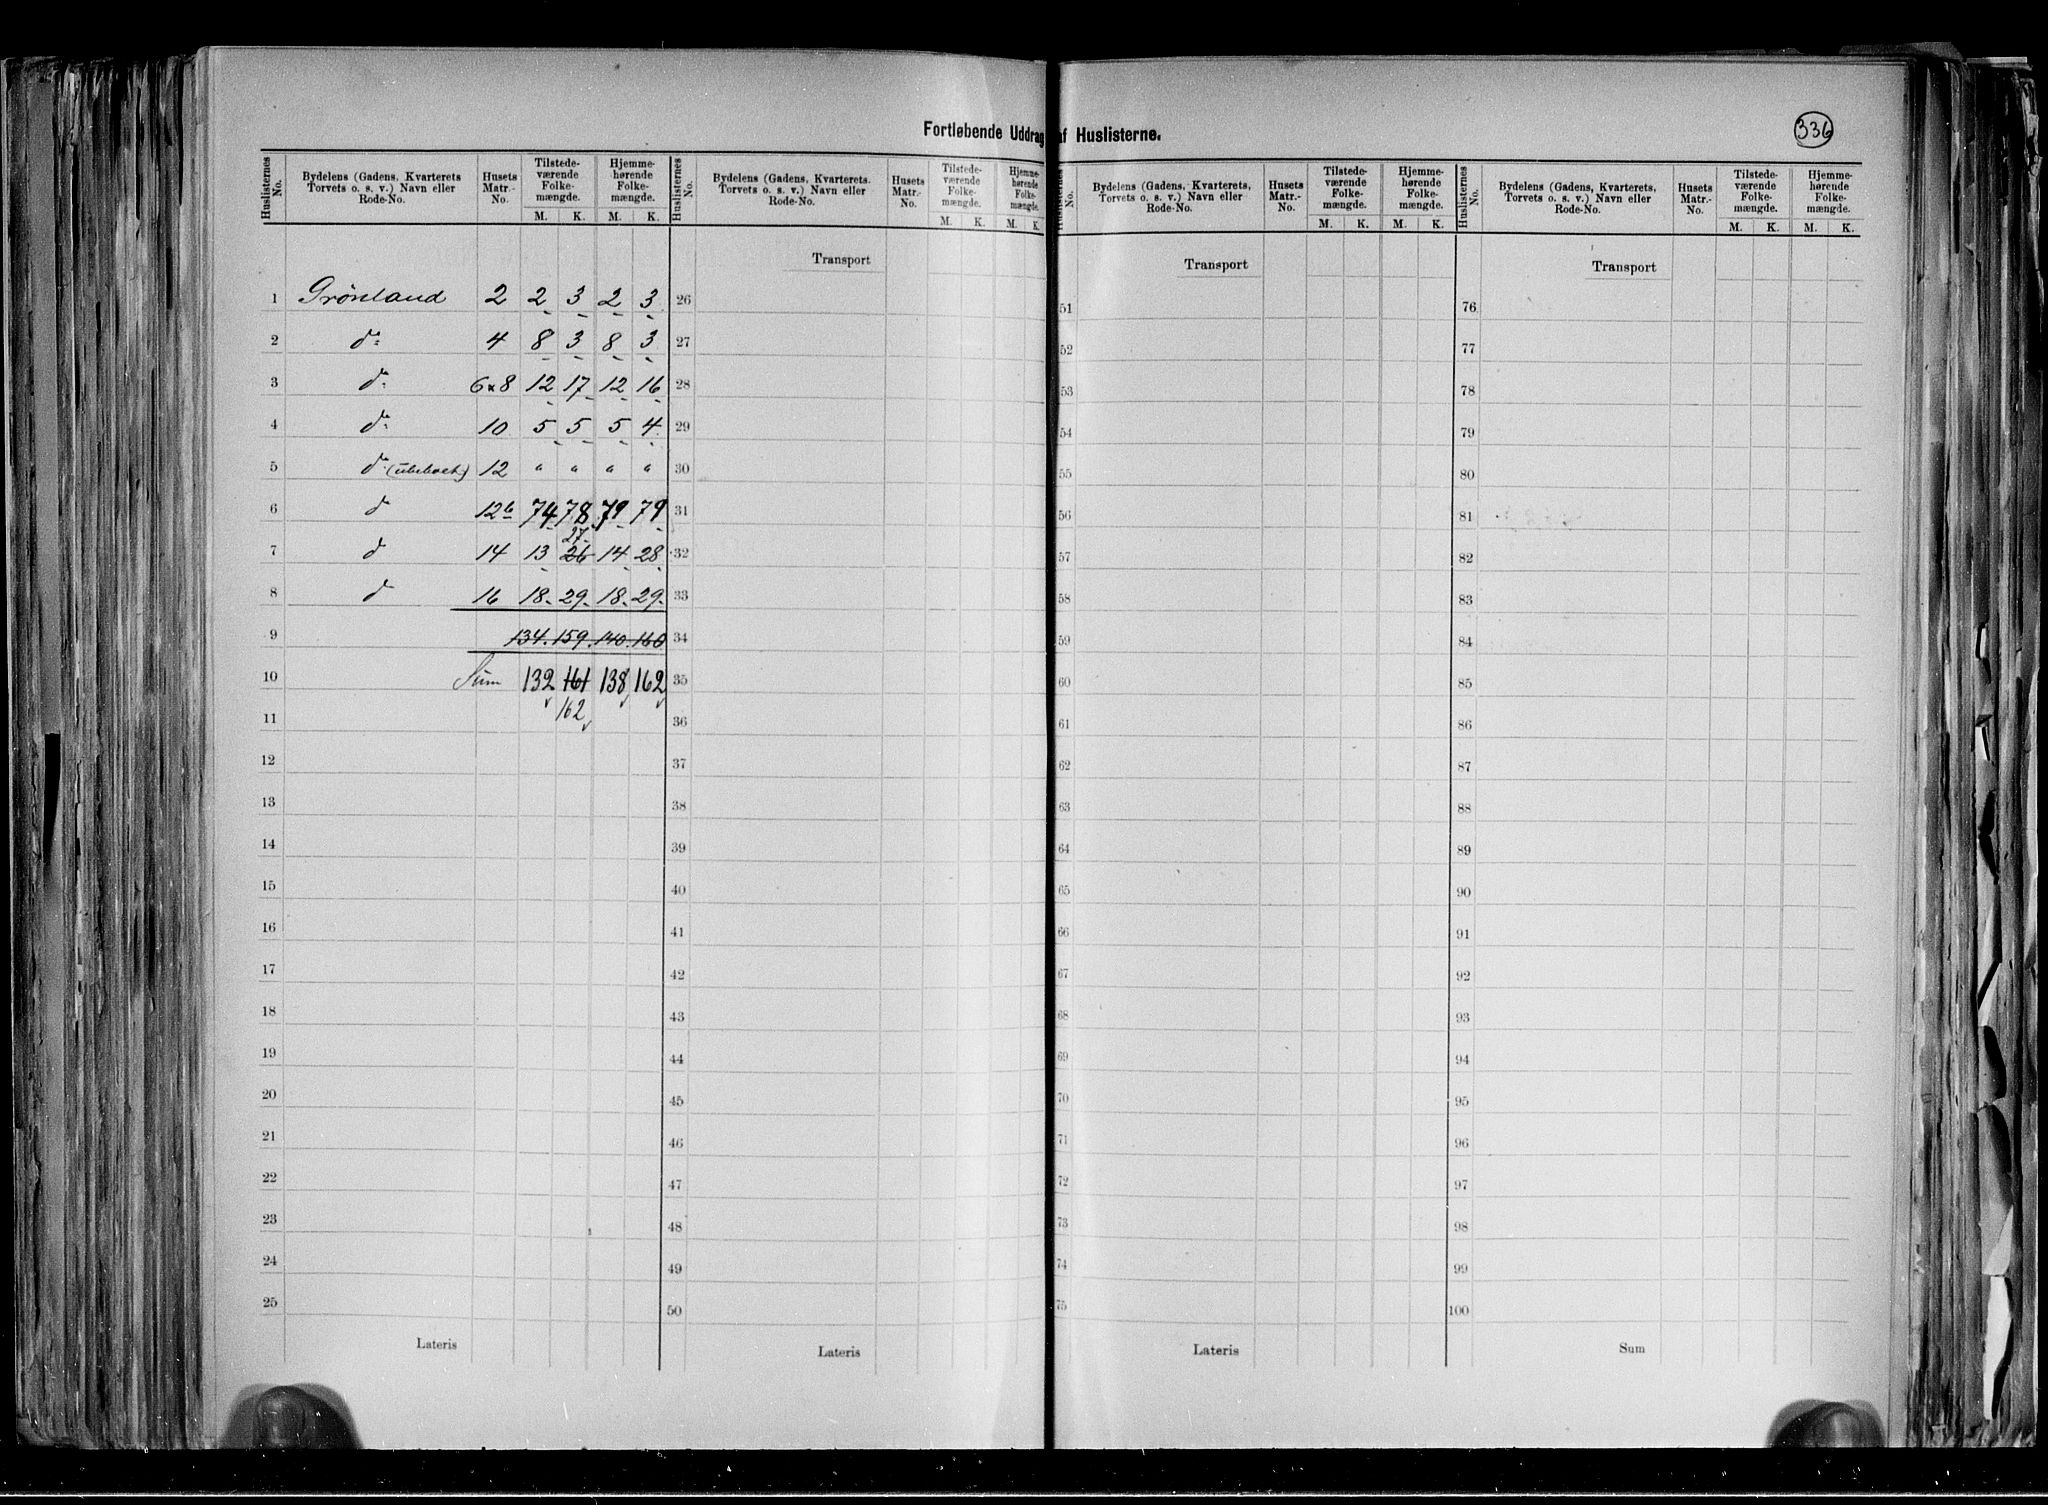 Fortløbende Uddrag af Huslisterne.
336
Huslisternes No. | Bydelens (Gadens, Kvarterets, Torvets o. s. v.) Navn eller Rode-No. | Husets Matr.-No. | Tilstedeværende Folkemængde. M. K. | Hjemmehørende Folkemængde. M. K.
1 Grönland 2 2 3 2 3
2 do 4 8 3 8 3
3 do 6 & 8 12 17 12 16
4 do 10 5 5 5 4
5 do (ubeboet) 12 " " " "
6 d 12b 74 78 79 79
27
7 d 14 13 26 14 28
8 d 16 18 29 18 29
9 134 159 140 160
10 Sum 132 161 138 162
162
11
12
13
14
15
16
17
18
19
20
21
22
23
24
25
Lateris
Huslisternes No. | Bydelens (Gadens, Kvarterets, Torvets o. s. v.) Navn eller Rode-No. | Husets Matr.-No. | Tilstedeværende Folkemængde. M. K. | Hjemmehørende Folkemængde. M. K.
Transport
26
27
28
29
30
31
32
33
34
35
36
37
38
39
40
41
42
43
44
45
46
47
48
49
50
Lateris
No. | Bydelens (Gadens, Kvarterets, Torvets o. s. v.) Navn eller Rode-No. | Husets Matr.-No. | Tilstedeværende Folkemængde. M. K. | Hjemmehørende Folkemængde. M. K.
Transport
51
52
53
54
55
56
57
58
59
60
61
62
63
64
65
66
67
68
69
70
71
72
73
74
75
Lateris
Huslisternes No. | Bydelens (Gadens, Kvarterets, Torvets o. s. v.) Navn eller Rode-No. | Husets Matr.-No. | Tilstedeværende Folkemængde. M. K. | Hjemmehørende Folkemængde. M. K.
Transport
76
77
78
79
80
81
82
83
84
85
86
87
88
89
90
91
92
93
94
95
96
97
98
99
100
Sum